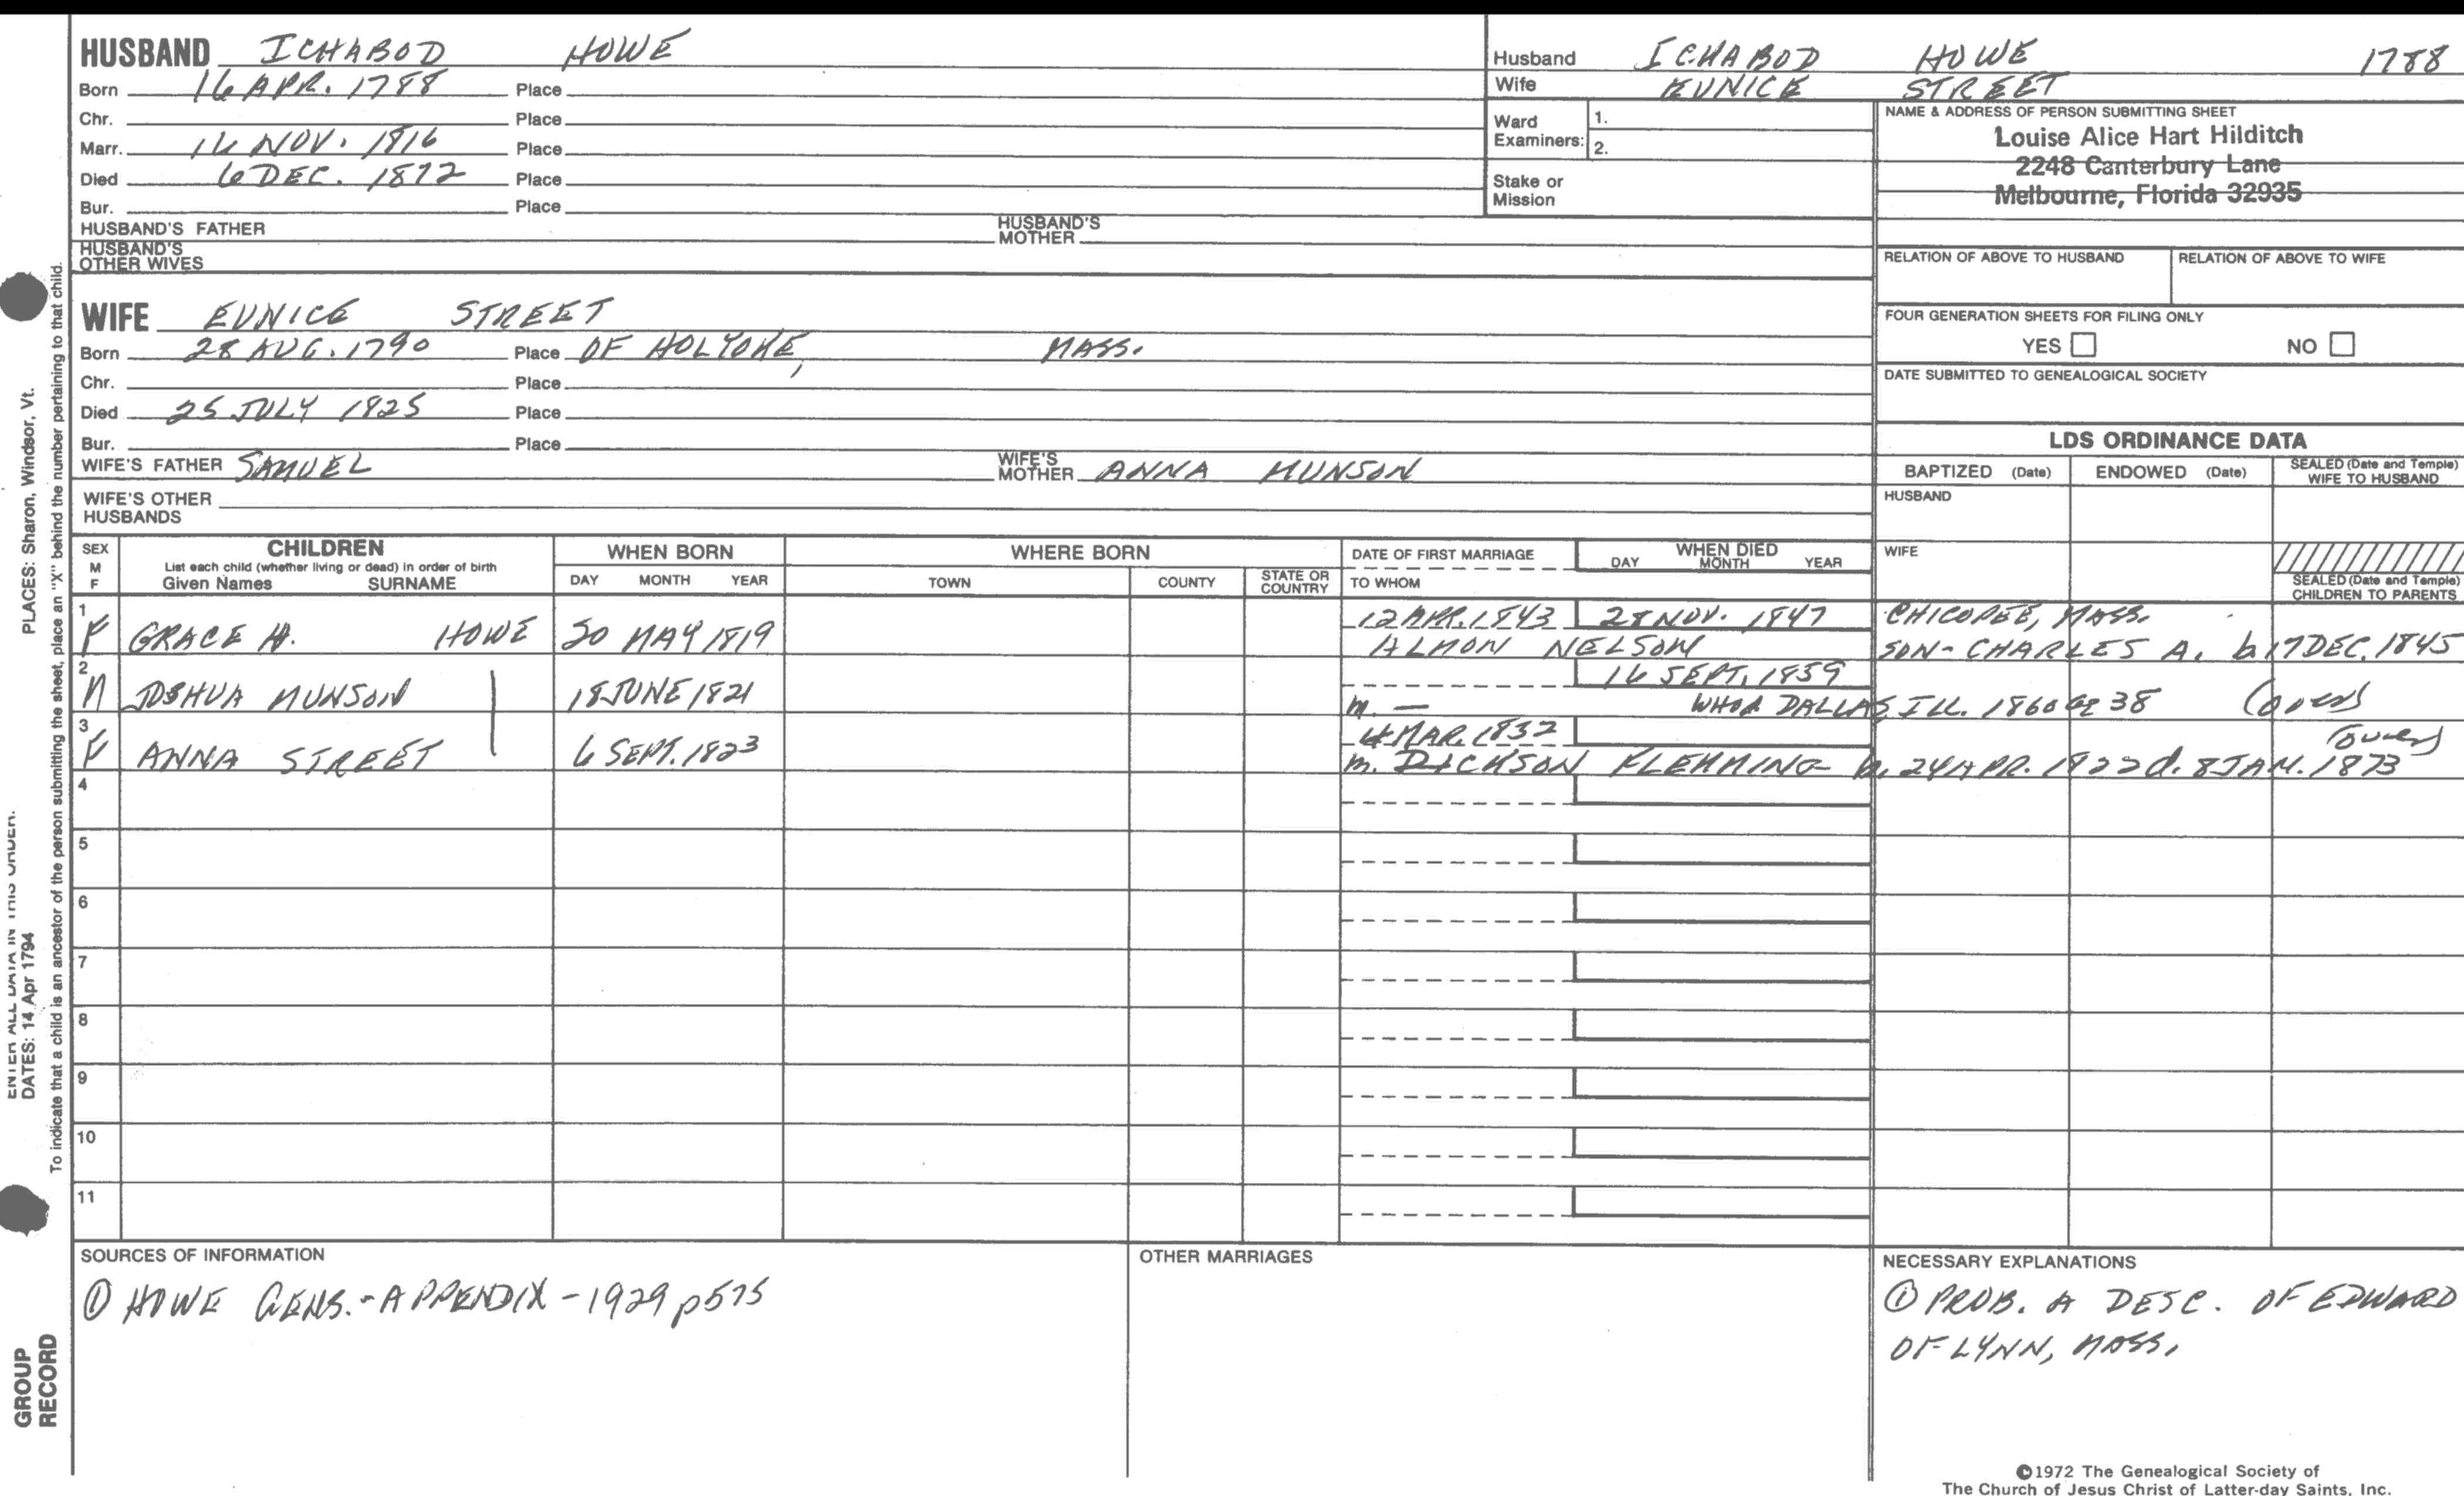 HUSBAND ICHABOD HOWE
Born 16 APR. 1788 Place
Chr. Place
Marr. 14 NOV. 1816 Place
Died 6 DEC. 1872 Place
Bur. Place
HUSBAND'S FATHER HUSBAND'S MOTHER
HUSBAND'S OTHER WIVES
Husband ICHABOD HOWE 1788
Wife EUNICE STREET
Ward Examiners: 1.
2.
Stake or Mission
NAME & ADDRESS OF PERSON SUBMITTING SHEET
Louise Alice Hart Hilditch
2248 Canterbury Lane
Melbourne, Florida 32935
RELATION OF ABOVE TO HUSBAND RELATION OF ABOVE TO WIFE
FOUR GENERATION SHEETS FOR FILING ONLY
YES NO
DATE SUBMITTED TO GENEALOGICAL SOCIETY
WIFE EUNICE STREET
Born 28 AUG. 1790 Place OF HOLYOKE, MASS.
Chr. Place
Died 25 JULY 1825 Place
Bur. Place
WIFE'S FATHER SAMUEL WIFE'S MOTHER ANNA MUNSON
WIFE'S OTHER HUSBANDS
LDS ORDINANCE DATA
BAPTIZED (Date) ENDOWED (Date) SEALED (Date and Temple) WIFE TO HUSBAND
HUSBAND
WIFE
SEALED (Date and Temple) CHILDREN TO PARENTS
SEX M F CHILDREN
List each child (whether living or dead) in order of birth
Given Names SURNAME
WHEN BORN
DAY MONTH YEAR
WHERE BORN
TOWN COUNTY STATE OR COUNTRY
DATE OF FIRST MARRIAGE
TO WHOM
WHEN DIED
DAY MONTH YEAR
1 12 APR. 1843 28 NOV. 1847 CHICOPEE, MASS.
F GRACE H. HOWE 30 MAY 1819 ALMON NELSON SON- CHARLES A. b 17 DEC. 1845
2 16 SEPT. 1859
M JOSHUA MUNSON 18 JUNE 1821 m. — DALLAS ILL. 1860 38 (over)
3 4 MAR. 1832 (over)
F ANNA STREET 6 SEPT. 1823 m. DICKSON FLEMMING b. 24 APR. 1822 d. 8 JAN. 1873
4
5
6
7
8
9
10
11
SOURCES OF INFORMATION
① HOWE GENS. - APPENDIX - 1929 p575
OTHER MARRIAGES
NECESSARY EXPLANATIONS
① PROB. A DESC. OF EDWARD
OF LYNN, MASS.
©1972 The Genealogical Society of
The Church of Jesus Christ of Latter-day Saints, Inc.
ENTER ALL DATA IN THIS ORDER.
DATES: 14 Apr 1794 PLACES: Sharon, Windsor, Vt.
To indicate that a child is an ancestor of the person submitting the sheet, place an "X" behind the number pertaining to that child.
GROUP
RECORD